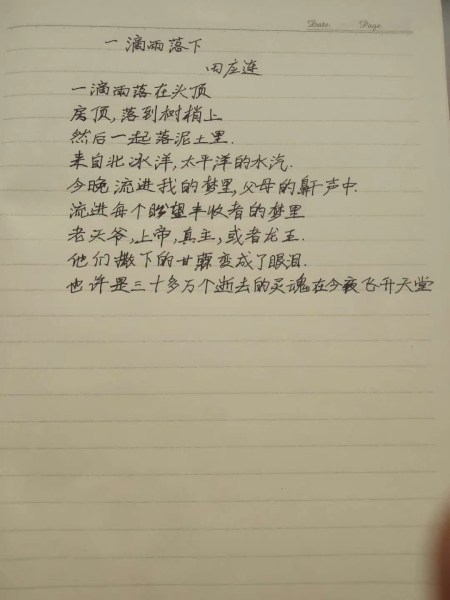 Date Page
一滴雨落下
田应连
一滴雨落在头顶
房顶,落到树梢上
然后一起落泥土里.
来自北冰洋,太平洋的水汽.
今晚流进我的梦里,父母的鼾声中.
流进每个盼望丰收者的梦里
老天爷,上帝,真主,或者龙王.
他们撒下的甘霖变成了眼泪.
也许是三十多万个逝去的灵魂在今夜飞升天堂